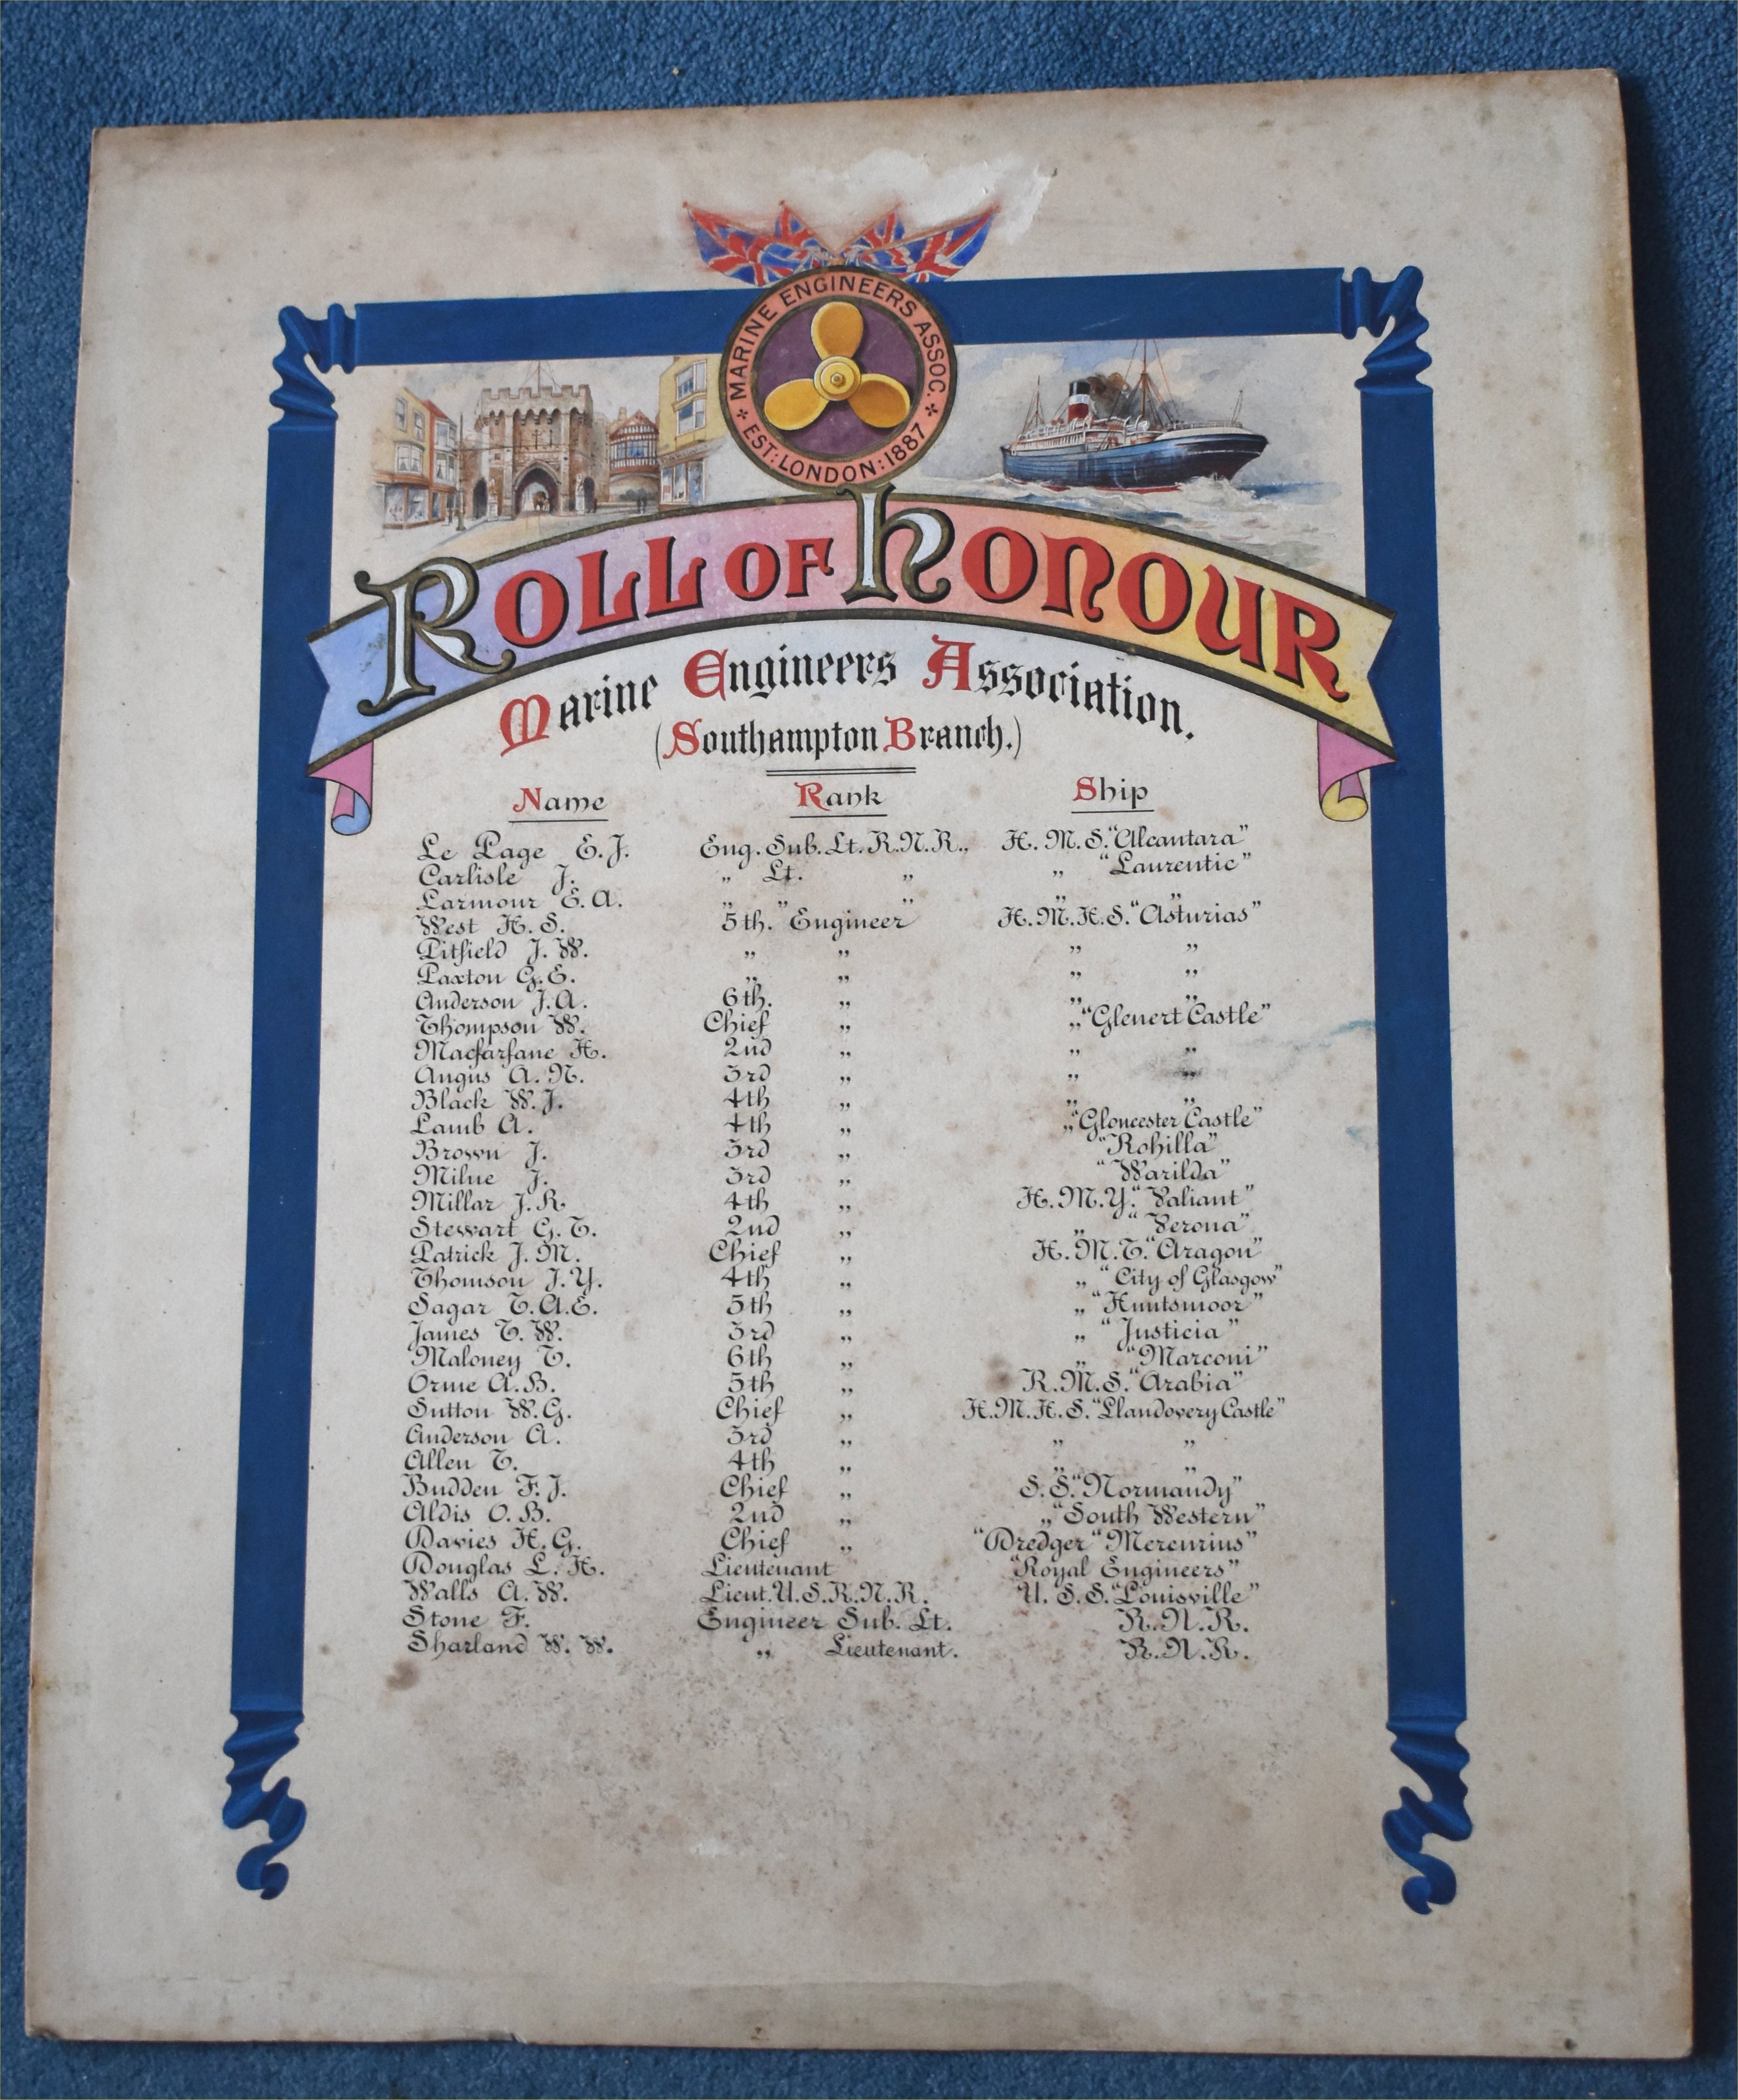 MARINE ENGINEERS ASSOC.
* EST: LONDON: 1887 *
ROLL OF HONOUR
Marine Engineers Association.
(Southampton Branch.)
Name Rank Ship
Le Page E.J. Eng. Sub. Lt. R.N.R., H.M.S. "Alcantara"
Carlisle J. „ Lt. „ „ "Laurentic"
Larmour E.A. „ „ „ „
West H.S. 5th. Engineer H.M.H.S. "Asturias"
Pitfield J.W. „ „ „ „
Paxton G.E. „ „ „ „
Anderson J.A. 6th. „ „ „
Thompson W. Chief „ „ "Glenert Castle"
Macfarfane H. 2nd „ „ „
Angus A.N. 3rd „ „ „
Black W.J. 4th „ „ „
Lamb A. 4th „ „ "Gloucester Castle"
Brown J. 3rd „ "Rohilla"
Milne J. 3rd „ "Warilda"
Millar J.R. 4th „ H.M.Y. "Valiant"
Stewart G.T. 2nd „ „ "Verona"
Patrick J.M. Chief „ H.M.T. "Aragon"
Thomson J.Y. 4th „ „ "City of Glasgow"
Sagar T.A.E. 5th „ „ "Huntsmoor"
James T.W. 3rd „ „ "Justicia"
Maloney T. 6th „ „ "Marconi"
Orme A.B. 5th „ R.M.S. "Arabia"
Sutton W.G. Chief „ H.M.H.S. "Llandovery Castle"
Anderson A. 3rd „ „ „
Allen T. 4th „ „ „
Budden F.J. Chief „ S.S. "Normandy"
Aldis O.B. 2nd „ „ "South Western"
Davies H.G. Chief „ "Dredger "Mercurius"
Douglas L.H. Lieutenant "Royal Engineers"
Walls A.W. Lieut. U.S.R.N.R. U.S.S. "Louisville"
Stone F. Engineer Sub. Lt. R.N.R.
Sharland W.W. „ Lieutenant. R.N.R.